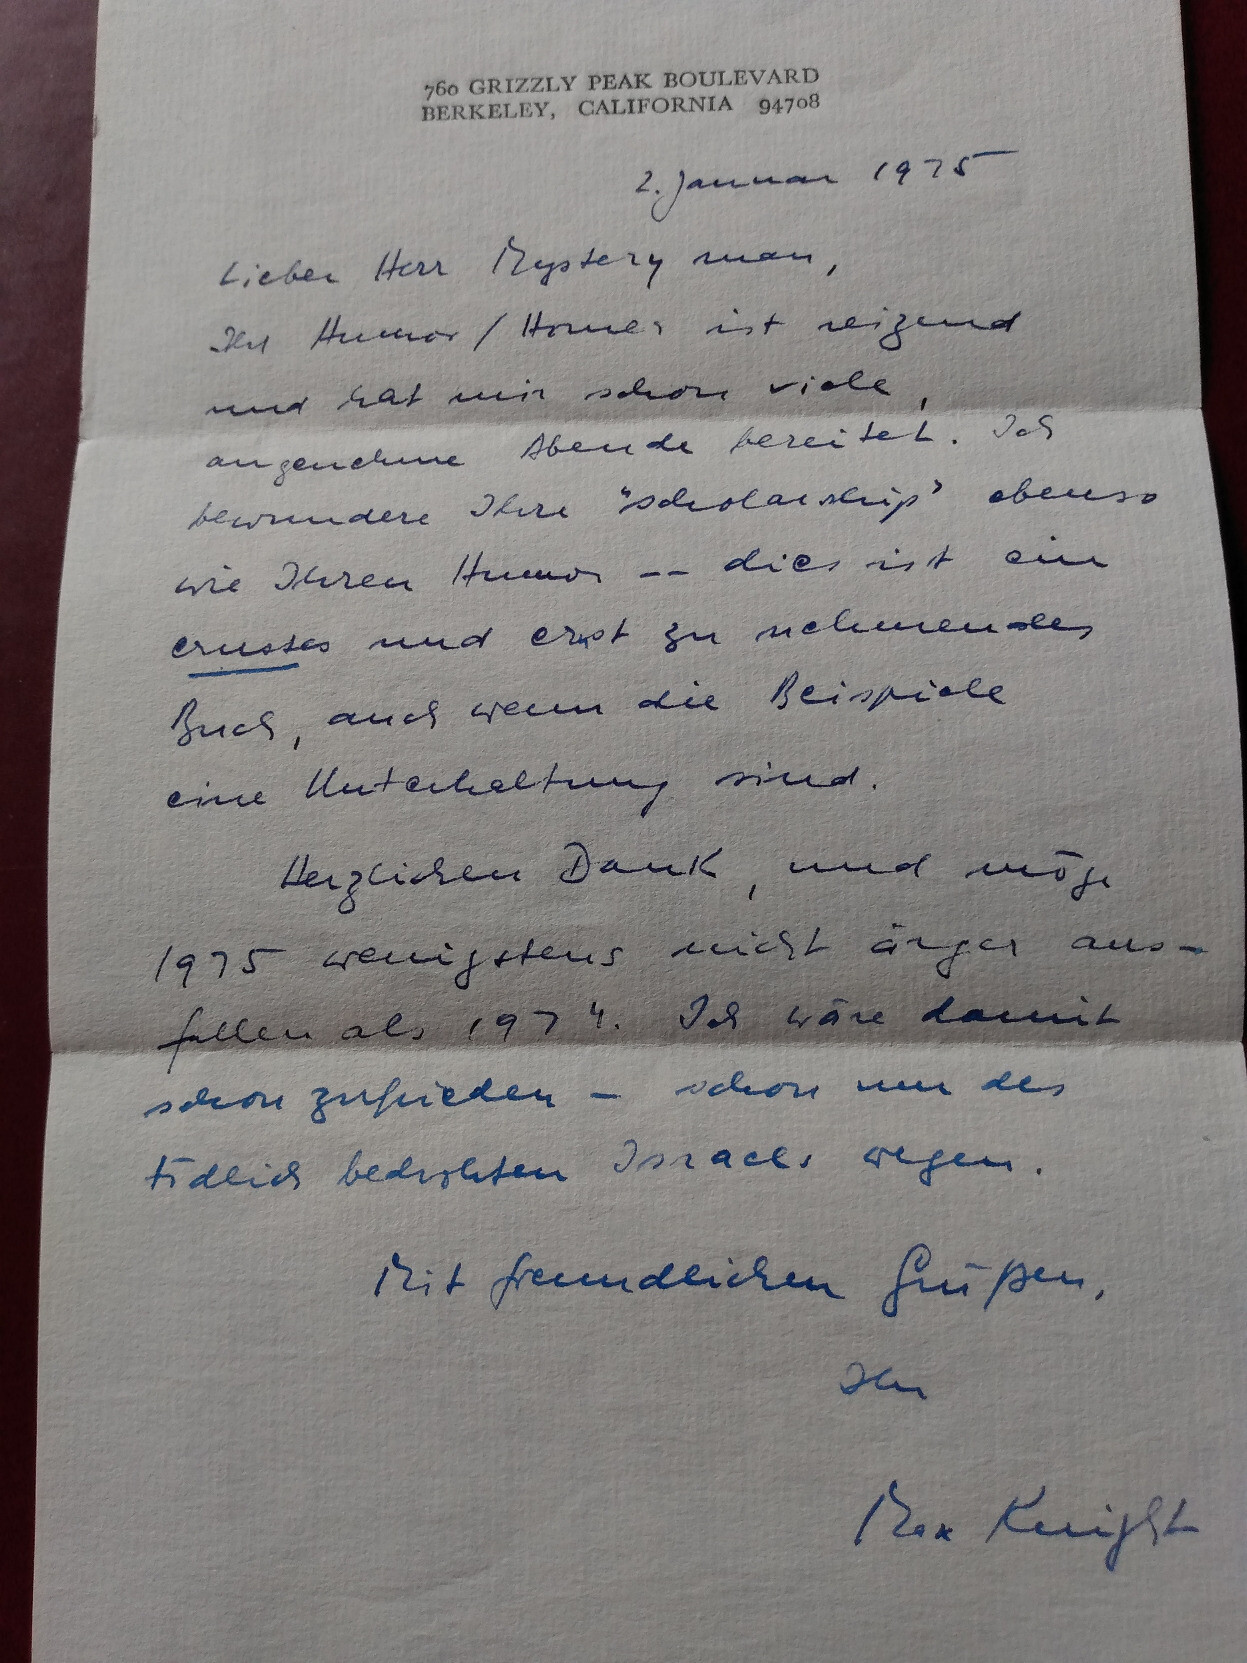 760 GRIZZLY PEAK BOULEVARD
BERKELEY, CALIFORNIA 94708
2. Januar 1975
Lieber Herr Mystery man,
Ihr Humor / Homer ist reizend
und hat mir schon viele,
angenehme Abende bereitet. Ich
bewundere Ihre "scholarship" ebenso
wie Ihren Humor -- dies ist ein
ernstes und ernst zu nehmendes
Buch, auch wenn die Beispiele
eine Unterhaltung sind.
Herzlichen Dank, und möge
1975 wenigstens nicht ärger aus-
fallen als 1974. Ich wäre damit
schon zufrieden - schon um des
tödlich bedrohten Israels wegen.
Mit freundlichen Grüßen,
Ihr
Max Knight